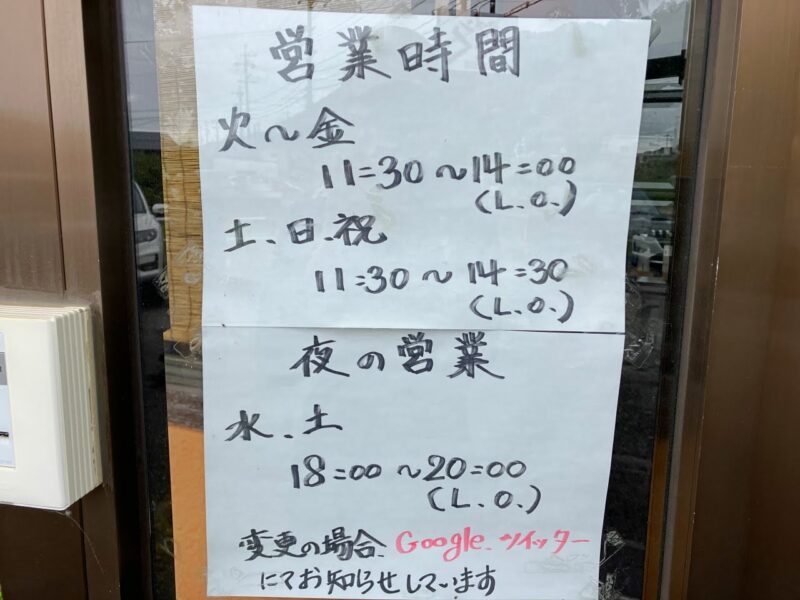 営業時間
火～金
11:30～14:00
(L.O.)
土、日、祝
11:30～14:30
(L.O.)
夜の営業
水、土
18:00～20:00
(L.O.)
変更の場合、Google、ツイッター
にてお知らせしています